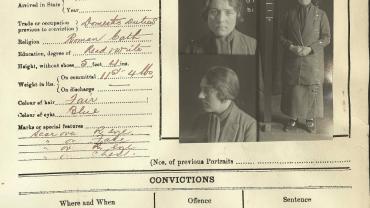 Arrived in State { Year
Trade or occupation previous to conviction } Domestic duties
Religion Roman Cath
Education, degree of Read & Write
Height, without shoes 5 feet 4 ins.
Weight in lbs. { On committal 11st 4 lbs
On discharge
Colour of hair Fair
Colour of eyes Blue
Marks or special features
Scar ova R. Eye
(Nos. of previous Portraits
CONVICTIONS
Where and When Offence Sentence